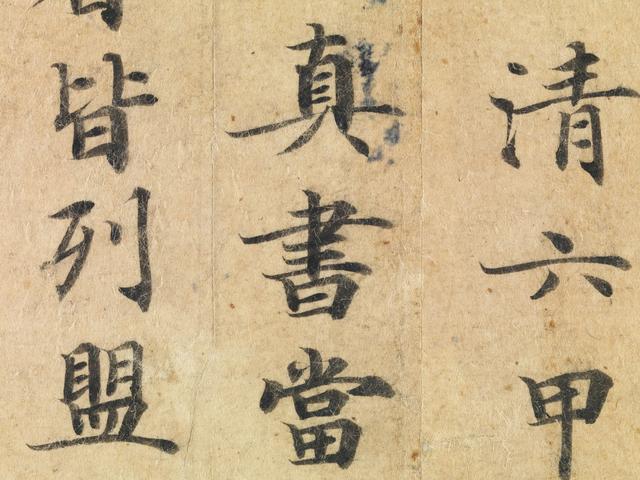 清六甲
真書當
皆列盟